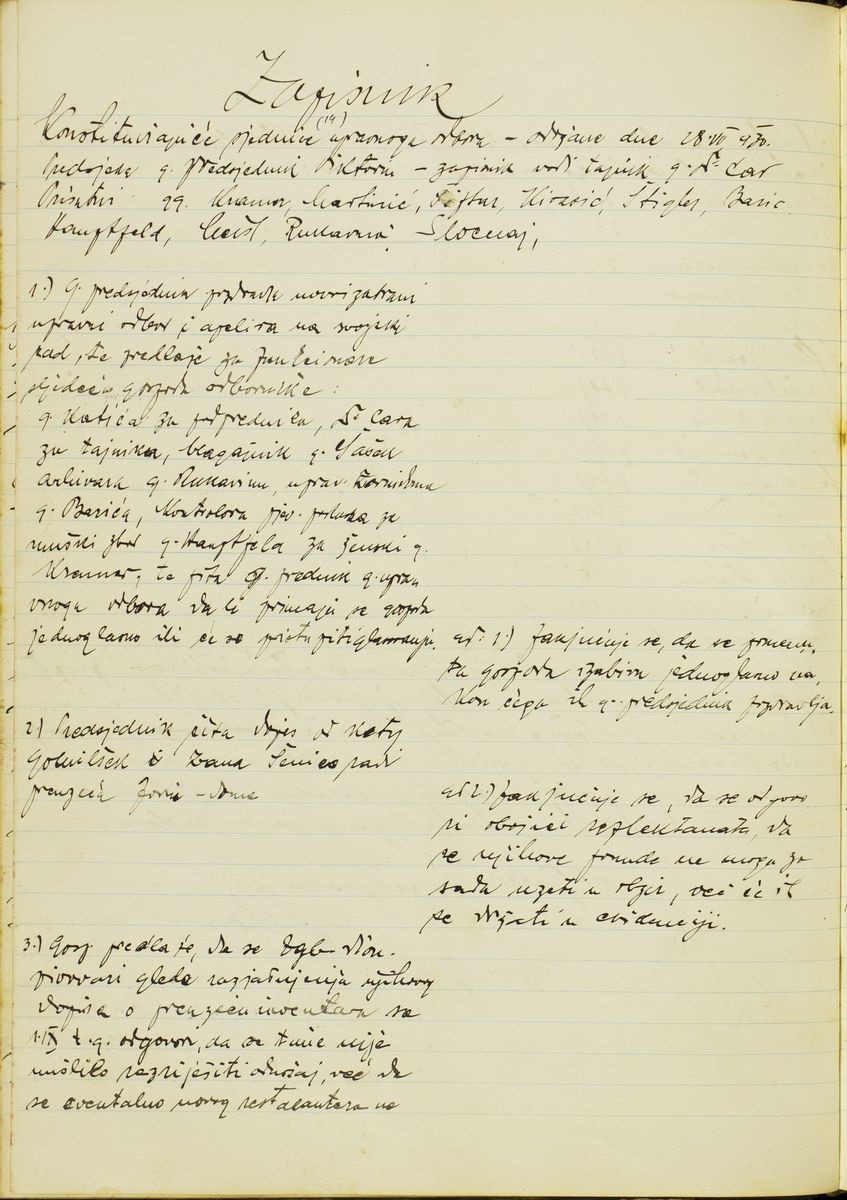 Zapisnik
Konstituirajuće sjednice (14) upravnoga odbora – održane dne 28.VII 930.
Predsjeda g. predsjednik Viktorin – zapisnik vodi tajnik g. S. Car
Prisutni: gg. Kramer, Martinić, Šiftar, Štigler, Baric
Hauptfeld, Rukavina, Slovenaj,
1.) G. predsjednik pozdravlja novoizabrani
upravni odbor i apelira na svojski
rad, te predlaže za funkcionere
sljedeću gospodu odbornike:
g. Katića za podpredsjednika, S. Cara
za tajnika, blagajnik g. Šašek
arhivara g. Rukavinu, uprav.
g. Barića, Kontrolora pjev. pokusa za
muški zbor g. Hauptfeld za ženski g.
Kramer, te pita g. predsjednik g. upra
vnoga odbora da li primaju se gospoda
jednoglasno ili će se pristupiti glasovanju.
ad. 1.) Zaključuje se, da se pomenu-
ta gospoda izabiru jednoglasno na-
kon čega ih g. predsjednik pozdravlja.
2) Predsjednik čita dopis od Katy
Golniček i Ivana Šenice radi
preuzeća domu
ad 2.) Zaključuje se, da se odgovo
ri obojici reflektanata, da
se njihove ponude ne mogu za
sada uzeti u obzir, već će ih
se držati u evidenciji.
3.) Gosp. predlaže, da se Zgb. dion.
pivovari glede razjašnjenja njihovog
dopisa o preuzeću inventara sa
1.IX t.g. odgovori, da se time nije
mislilo razriješiti odnošaj, već da
se eventualno novog restauratera ne